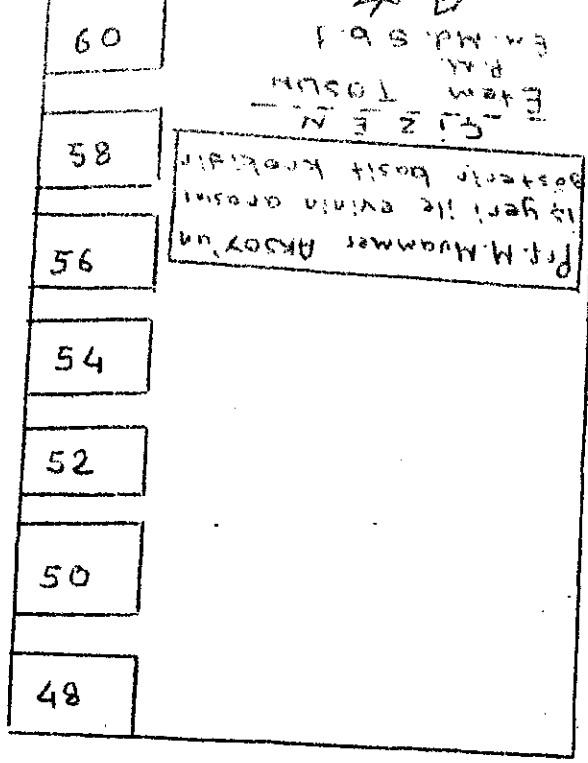 60
58
56
54
52
50
48
Prf. M. Muammer AKSOY'un
iş yeri ile evinin arasını
gösterir basit krokidir
ÇİZEN
Etem TOSUN
P.M.
Em. Md. Sb. 1